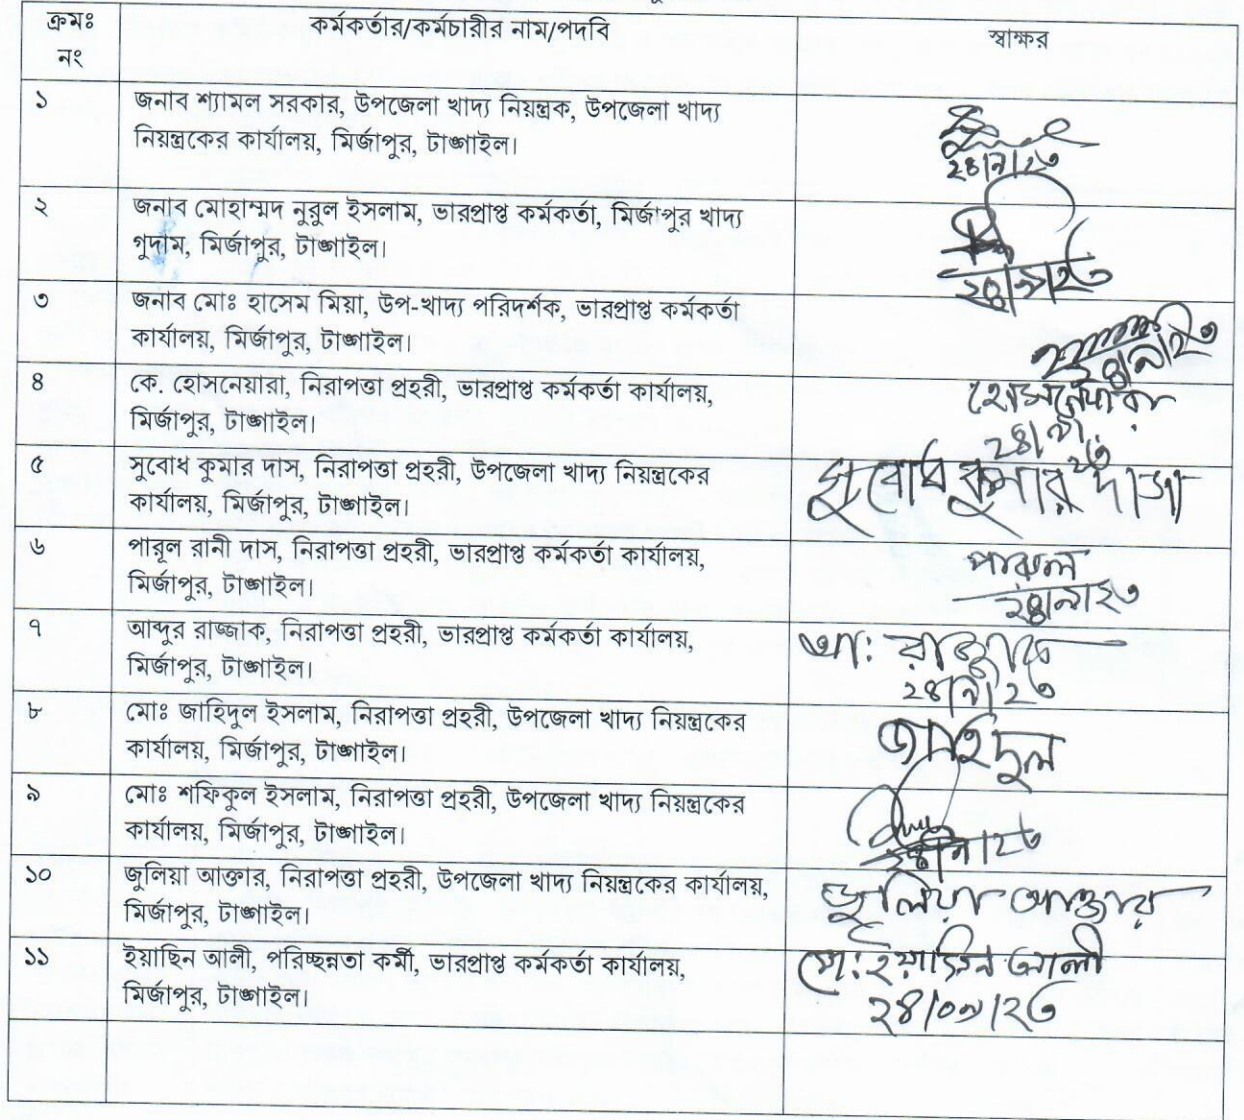 ক্রমঃ নং কর্মকর্তার/কর্মচারীর নাম/পদবি স্বাক্ষর
১ জনাব শ্যামল সরকার, উপজেলা খাদ্য নিয়ন্ত্রক, উপজেলা খাদ্য
নিয়ন্ত্রকের কার্যালয়, মির্জাপুর, টাঙ্গাইল।
২৪/৯/২৩
২ জনাব মোহাম্মদ নুরুল ইসলাম, ভারপ্রাপ্ত কর্মকর্তা, মির্জাপুর খাদ্য
গুদাম, মির্জাপুর, টাঙ্গাইল।
২৪/৯/২৩
৩ জনাব মোঃ হাসেম মিয়া, উপ-খাদ্য পরিদর্শক, ভারপ্রাপ্ত কর্মকর্তা
কার্যালয়, মির্জাপুর, টাঙ্গাইল।
২৪/৯/২৩
৪ কে. হোসনেয়ারা, নিরাপত্তা প্রহরী, ভারপ্রাপ্ত কর্মকর্তা কার্যালয়, হোসনেয়ারা
মির্জাপুর, টাঙ্গাইল।
২৪/৯/২৩
৫ সুবোধ কুমার দাস, নিরাপত্তা প্রহরী, উপজেলা খাদ্য নিয়ন্ত্রকের সুবোধ কুমার দাস
কার্যালয়, মির্জাপুর, টাঙ্গাইল।
৬ পারূল রানী দাস, নিরাপত্তা প্রহরী, ভারপ্রাপ্ত কর্মকর্তা কার্যালয়, পারুল
মির্জাপুর, টাঙ্গাইল। ২৪/৯/২৩
৭ আব্দুর রাজ্জাক, নিরাপত্তা প্রহরী, ভারপ্রাপ্ত কর্মকর্তা কার্যালয়, আ: রাজ্জাক
মির্জাপুর, টাঙ্গাইল। ২৪/৯/২৩
৮ মোঃ জাহিদুল ইসলাম, নিরাপত্তা প্রহরী, উপজেলা খাদ্য নিয়ন্ত্রকের জাহিদুল
কার্যালয়, মির্জাপুর, টাঙ্গাইল।
৯ মোঃ শফিকুল ইসলাম, নিরাপত্তা প্রহরী, উপজেলা খাদ্য নিয়ন্ত্রকের
কার্যালয়, মির্জাপুর, টাঙ্গাইল। ২৪/৯/২৩
১০ জুলিয়া আক্তার, নিরাপত্তা প্রহরী, উপজেলা খাদ্য নিয়ন্ত্রকের কার্যালয়, জুলিয়া আক্তার
মির্জাপুর, টাঙ্গাইল।
১১ ইয়াছিন আলী, পরিচ্ছন্নতা কর্মী, ভারপ্রাপ্ত কর্মকর্তা কার্যালয়, মো: ইয়াসিন আলী
মির্জাপুর, টাঙ্গাইল। ২৪/০৯/২৩